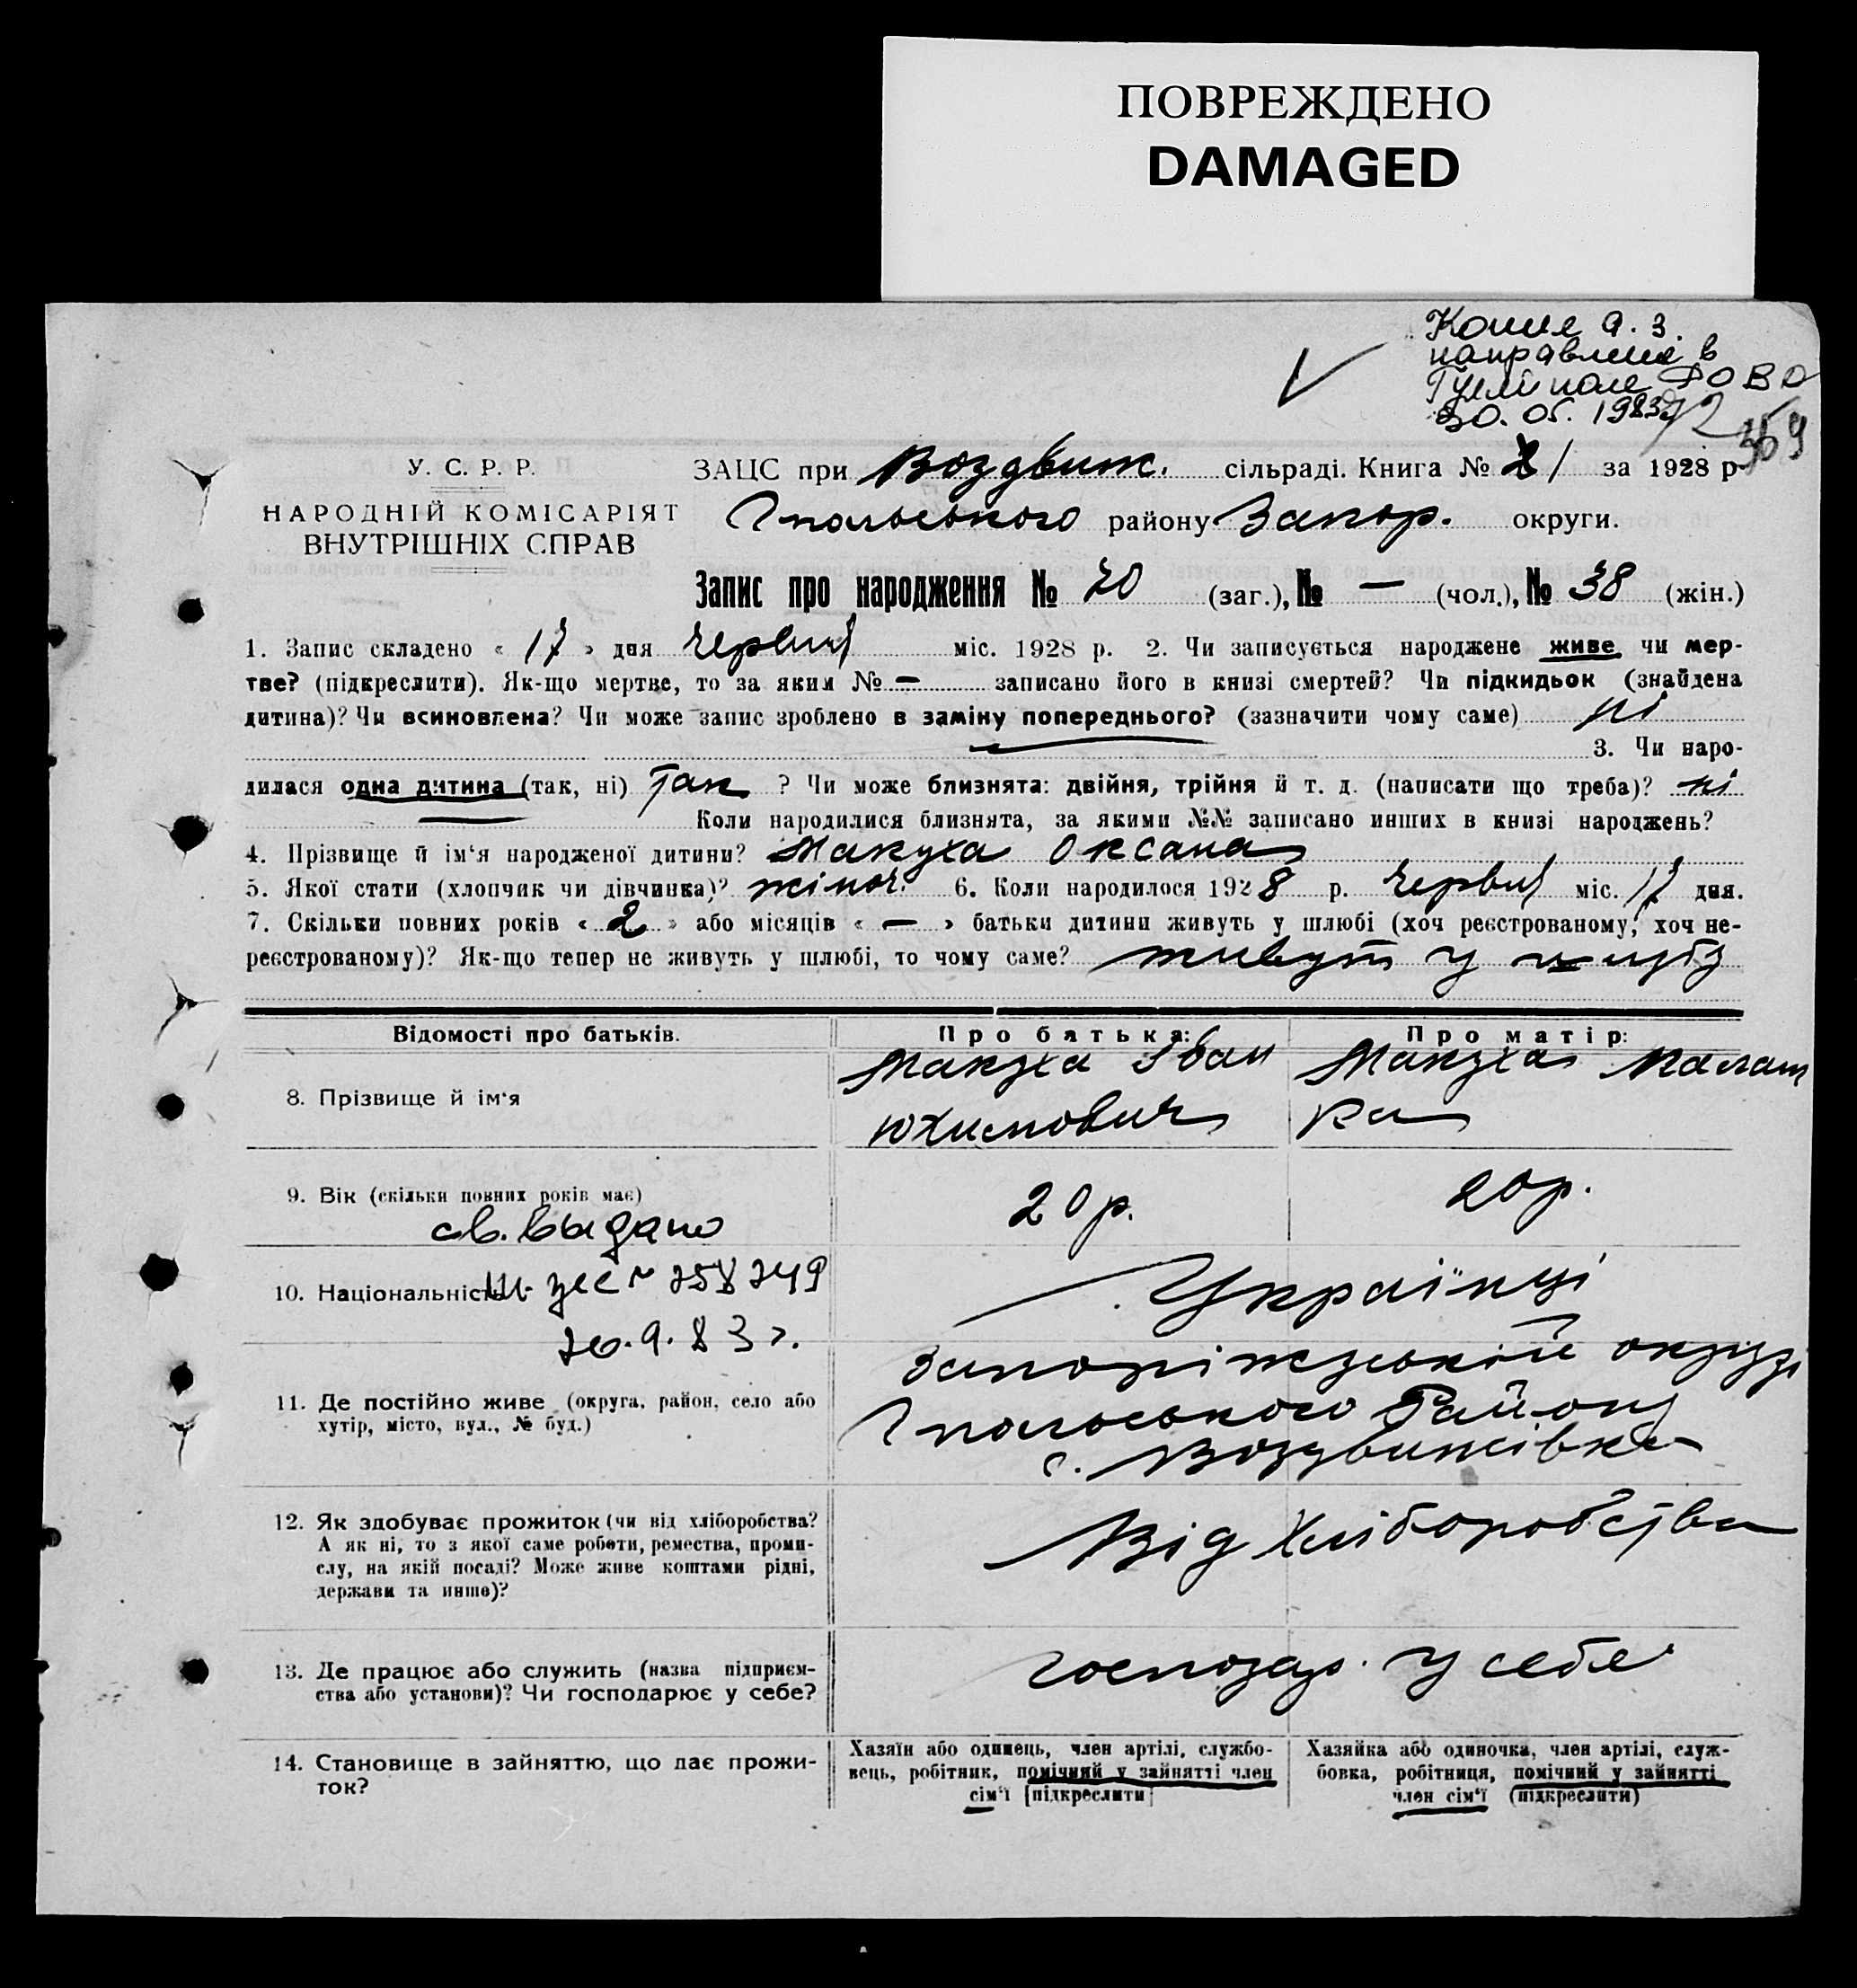 ПОВРЕЖДЕНО
DAMAGED
Копия а.з.
направлена в
Гуляйполе РОВД
30.05.1983
У. С. Р. Р.
НАРОДНІЙ КОМІСАРІЯТ
ВНУТРІШНІХ СПРАВ
ЗАЦС при Воздвиж. сільраді. Книга № 1 за 1928 р.
Гпольського району Запор. округи.
Запис про народження № 70 (заг.), № — (чол.), № 38 (жін.)
1. Запис складено « 17 » дня червня міс. 1928 р. 2. Чи записується народжене живе чи мер-
тве? (підкреслити). Як-що мертве, то за яким № — записано його в книзі смертей? Чи підкидьок (знайдена
дитина)? Чи всиновлена? Чи може запис зроблено в заміну попереднього? (зазначити чому саме) ні
3. Чи наро-
дилася одна дитина (так, ні) так ? Чи може близнята: двійня, трійня й т. д. (написати що треба)? ні
Коли народилися близнята, за якими №№ записано инших в книзі народжень?
4. Прізвище й ім'я народженої дитини? Макуха Оксана
5. Якої стати (хлопчик чи дівчинка)? жіноч. 6. Коли народилося 1928 р. червня міс. 17 дня.
7. Скільки повних років « 2 » або місяців « — » батьки дитини живуть у шлюбі (хоч реєстрованому, хоч не-
реєстрованому)? Як-що тепер не живуть у шлюбі, то чому саме? живут у шлубі
Відомості про батьків.
Про батька:
Про матір:
8. Прізвище й ім'я
Макуха Іван
Юхимович
Макуха Малаш
ка
9. Вік (скільки повних років має)
20 р.
20 р.
св. выдано
10. Національність
Українці
11. Де постійно живе (округа, район, село або
хутір, місто, вул., № буд.)
Запоріжській окрузі
Гпольського Району
с. Воздвижівка
12. Як здобуває прожиток (чи від хліборобства?
А як ні, то з якої саме роботи, ремества, проми-
слу, на якій посаді? Може живе коштами рідні,
держави та инше)?
Від Хліборобства
13. Де працює або служить (назва підприєм-
ства або установи)? Чи господарює у себе?
господар. у себе
14. Становище в зайняттю, що дає прожи-
ток?
Хазяїн або одинець, член артілі, службо-
вець, робітник, помічний у зайнятті член
сім'ї (підкреслити)
Хазяйка або одиночка, член артілі, служ-
бовка, робітниця, помічний у зайнятті
член сім'ї (підкреслити)